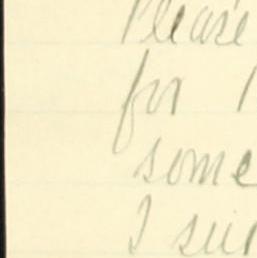 Please
for
some
I